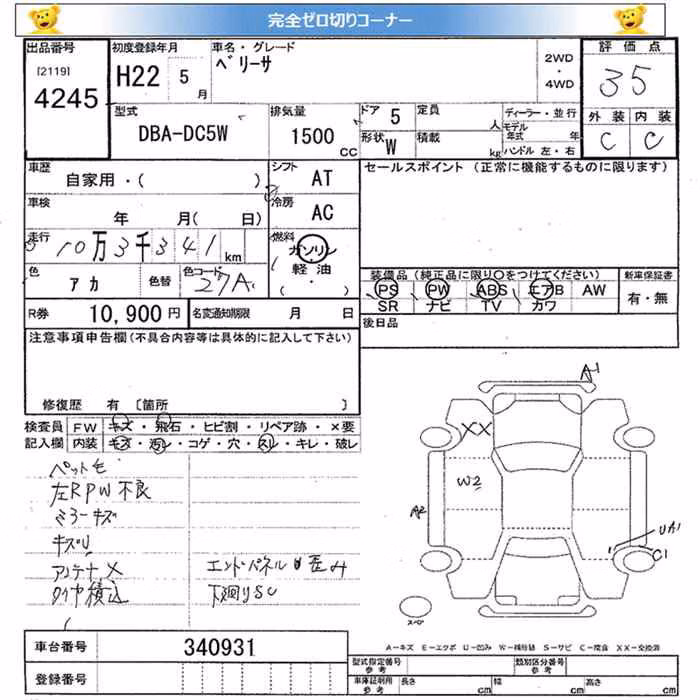 完全ゼロ切りコーナー
出品番号
[2119]
4245
初度登録年月
H22 5 月
車名・グレード
ベリーサ
2WD
・
4WD
評価点
3.5
型式
DBA-DC5W
排気量
1500 CC
ドア 5
定員 人
形状 W
積載 kg
ディーラー・並行
モデル年式 年
ハンドル 左・右
外装 内装
C C
車歴
自家用・( )
シフト AT
車検
年 月( 日)
冷房 AC
走行 10万3千341km
燃料 ガソリン
軽油
( ・ )
色 アカ
色替
色コード 27A
R券 10,900円
名変通知期限 月 日
セールスポイント (正常に機能するものに限ります)
装備品 (純正品に限り○をつけてください)
PS PW ABS エアB AW
SR ナビ TV カワ
新車保証書
有・無
後日品
注意事項申告欄(不具合内容等は具体的に記入して下さい)
修復歴 有 〔箇所 〕
検査員記入欄
FW キズ・飛石・ヒビ割・リペア跡・×要
内装 キズ・汚レ・コゲ・穴・スレ・キレ・破レ
ペット毛
左RPW不良
ミラーキズ
キズU
アンテナX
タイヤ積込
エンドパネルU歪み
下廻りSC
A1
XX
W2
A2
UA1
C1
スペア
A-キズ E-エクボ U-凹み W-補修跡 S-サビ C-腐食 XX-交換済
車台番号 340931
登録番号
型式指定番号 参考
類別区分番号 参考
車庫証明用 参考
長さ cm 幅 cm 高さ cm